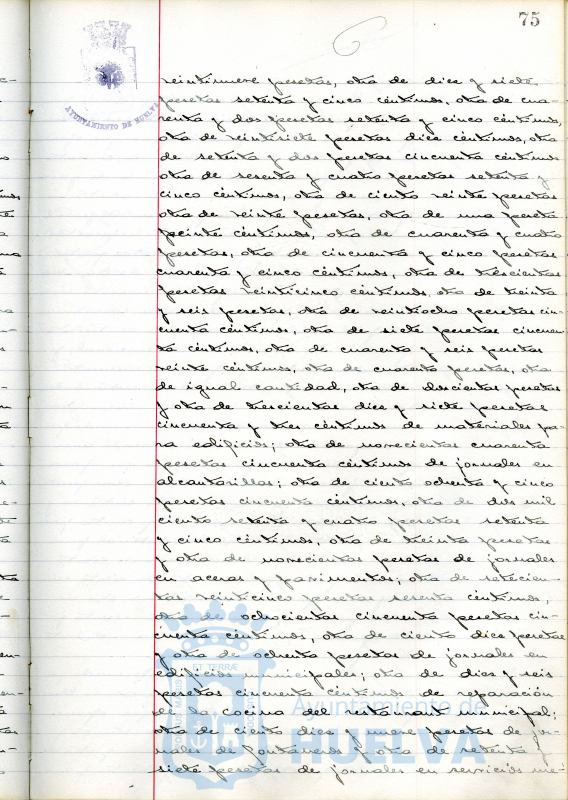 75
AYUNTAMIENTO DE HUELVA
veintinueve pesetas, otra de diez y siete
pesetas setenta y cinco céntimos, otra de cua-
renta y dos pesetas setenta y cinco céntimos,
otra de veintisiete pesetas diez céntimos, otra
de setenta y dos pesetas cincuenta céntimos
otra de sesenta y cuatro pesetas setenta y
cinco céntimos, otra de ciento veinte pesetas
otra de veinte pesetas, otra de una peseta
veinte céntimos, otra de cuarenta y cuatro
pesetas, otra de cincuenta y cinco pesetas
cuarenta y cinco céntimos, otra de trescientas
pesetas veinticinco céntimos, otra de treinta
y seis pesetas, otra de veintiocho pesetas cin-
cuenta céntimos, otra de siete pesetas cincuen
ta céntimos, otra de cuarenta y seis pesetas
veinte céntimos, otra de cuarenta pesetas, otra
de igual cantidad, otra de doscientas pesetas
y otra de trescientas diez y siete pesetas
cincuenta y tres céntimos de materiales pa-
ra edificios; otra de novecientas cuarenta
pesetas cincuenta céntimos de jornales en
alcantarillas; otra de ciento ochenta y cinco
pesetas cincuenta céntimos, otra de dos mil
ciento setenta y cuatro pesetas setenta
y cinco céntimos, otra de treinta pesetas
y otra de novecientas pesetas de jornales
en aceras y pavimentos; otra de setecien-
tas veinticinco pesetas sesenta céntimos,
otra de ochocientas cincuenta pesetas cin-
cuenta céntimos, otra de ciento diez pesetas
y otra de ochenta pesetas de jornales en
edificios municipales; otra de diez y seis
pesetas cincuenta céntimos de reparación
de la cocina del restaurant municipal;
otra de ciento diez y nueve pesetas de jor-
nales de fontaneros y otra de setenta y
siete pesetas de jornales en servicios mé-
ET TERRÆ
Ayuntamiento de
HUELVA